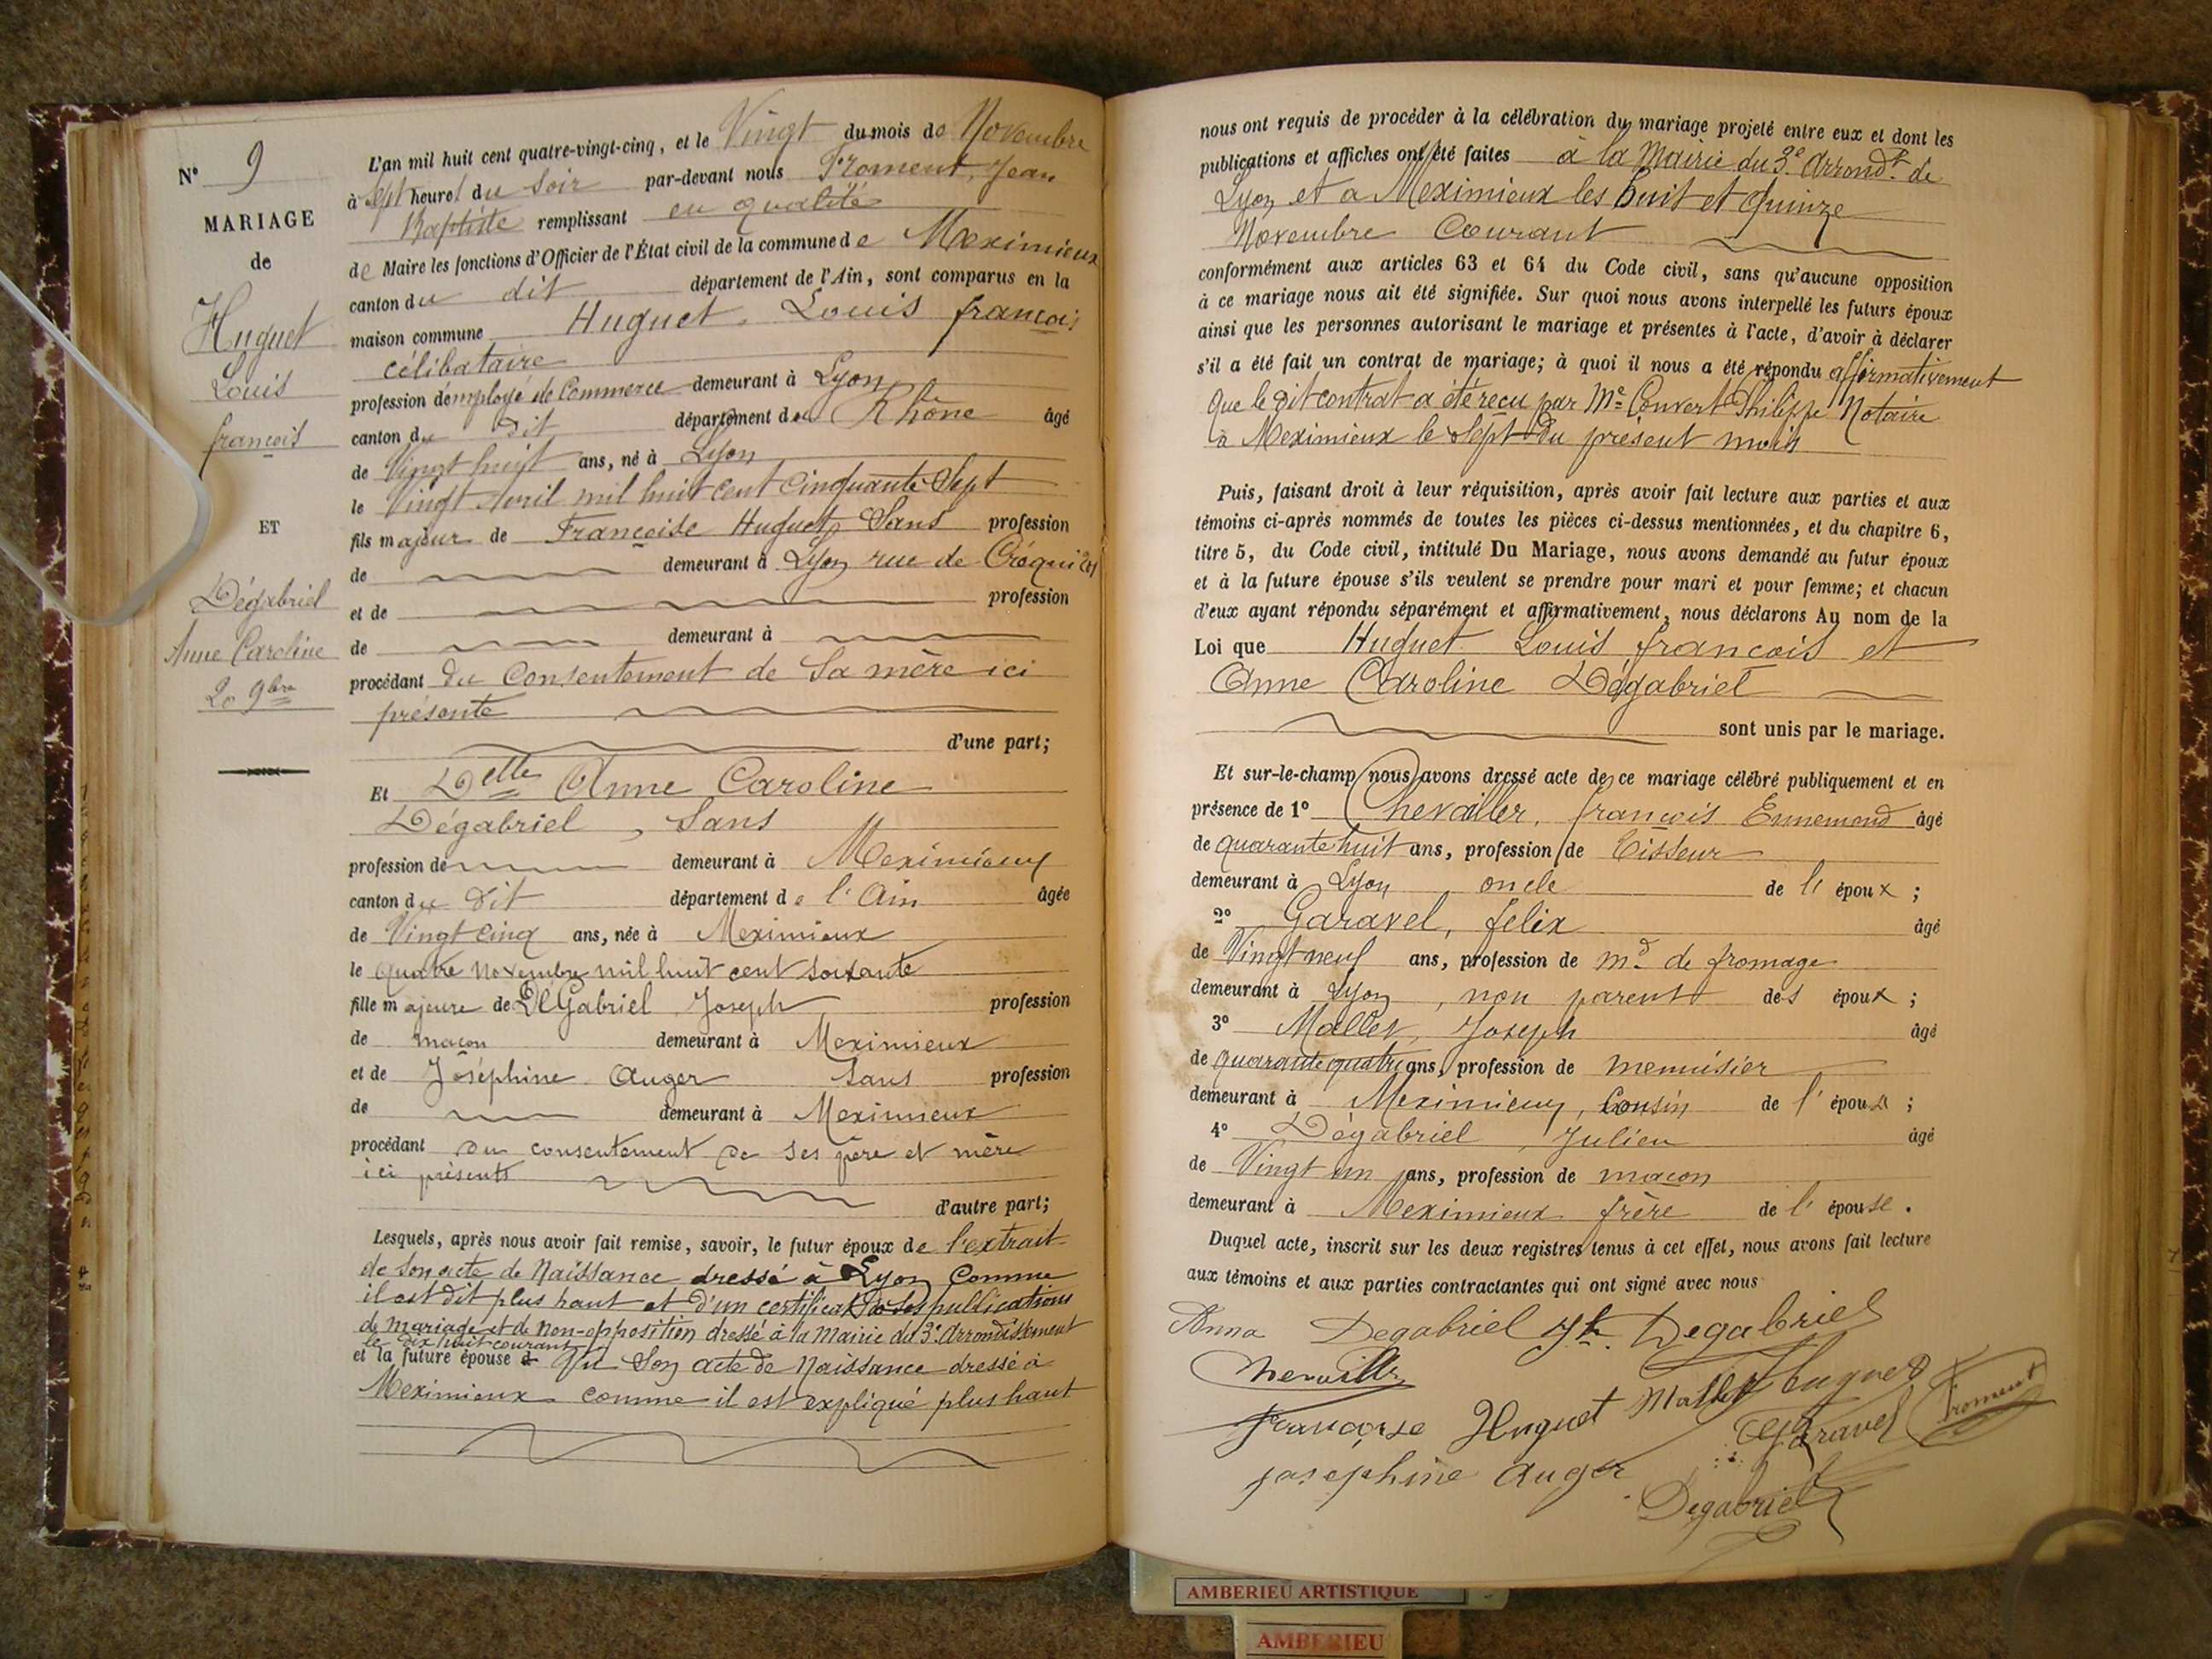 N° 9
MARIAGE
de
Huguet
Louis
françois
ET
Dégabriel
Anne Caroline
20 9bre
L'an mil huit cent quatre-vingt-cinq, et le Vingt du mois de Novembre
à Sept heures du Soir par-devant nous Froment, Jean
Baptiste remplissant en qualité
de Maire les fonctions d'Officier de l'État civil de la commune de Meximieux
canton du dit département de l'Ain, sont comparus en la
maison commune Huguet, Louis françois
célibataire
profession d'employé de Commerce demeurant à Lyon
canton du dit département du Rhône âgé
de Vingt huit ans, né à Lyon
le Vingt Avril mil huit cent Cinquante Sept
fils majeur de Françoise Huguet, Sans profession
de demeurant à Lyon rue de Créqui
et de profession
de demeurant à
procédant du Consentement de Sa mère ici
présente
d'une part;
Et Delle Anne Caroline
Dégabriel, Sans
profession de demeurant à Meximieux
canton du dit département de l'Ain âgée
de Vingt Cinq ans, née à Meximieux
le quatre Novembre mil huit cent Soixante
fille majeure de DéGabriel Joseph profession
de maçon demeurant à Meximieux
et de Joséphine Auger Sans profession
de demeurant à Meximieux
procédant du consentement de ses père et mère
ici présents
d'autre part;
Lesquels, après nous avoir fait remise, savoir, le futur époux de l'extrait
de Son acte de Naissance dressé à Lyon Comme
il est dit plus haut et d'un certificat de ses publications
de Mariage et de Non-opposition dressé à la Mairie du 3e Arrondissement
le dix huit courant
et la future épouse Son acte de Naissance dressé à
Meximieux comme il est expliqué plus haut
nous ont requis de procéder à la célébration du mariage projeté entre eux et dont les
publications et affiches ont été faites à la Mairie du 3e Arrondt. de
Lyon et à Meximieux les huit et Quinze
Novembre Courant
conformément aux articles 63 et 64 du Code civil, sans qu'aucune opposition
à ce mariage nous ait été signifiée. Sur quoi nous avons interpellé les futurs époux
ainsi que les personnes autorisant le mariage et présentes à l'acte, d'avoir à déclarer
s'il a été fait un contrat de mariage; à quoi il nous a été répondu affirmativement
Que le dit contrat a été reçu par Me Convert Philippe Notaire
à Meximieux le Sept du présent mois
Puis, faisant droit à leur réquisition, après avoir fait lecture aux parties et aux
témoins ci-après nommés de toutes les pièces ci-dessus mentionnées, et du chapitre 6,
titre 5, du Code civil, intitulé Du Mariage, nous avons demandé au futur époux
et à la future épouse s'ils veulent se prendre pour mari et pour femme; et chacun
d'eux ayant répondu séparément et affirmativement, nous déclarons Au nom de la
Loi que Huguet Louis françois et
Anne Caroline Dégabriel
sont unis par le mariage.
Et sur-le-champ nous avons dressé acte de ce mariage célébré publiquement et en
présence de 1° Chevailler, françois Ennemond âgé
de quarante huit ans, profession de tisseur
demeurant à Lyon oncle de l'époux;
2° Garavel, felix âgé
de Vingt neuf ans, profession de md de fromage
demeurant à Lyon, non parent des époux;
3° Mallet, Joseph âgé
de quarante quatre ans, profession de menuisier
demeurant à Meximieux, Cousin de l'époux;
4° Dégabriel Julien âgé
de Vingt un ans, profession de maçon
demeurant à Meximieux frère de l'épouse.
Duquel acte, inscrit sur les deux registres tenus à cet effet, nous avons fait lecture
aux témoins et aux parties contractantes qui ont signé avec nous
Anna Degabriel Jh. Degabriel
Chevailler Mallet Huguet Froment
françoise Huguet Garavel
josephine Auger
Degabriel
AMBERIEU ARTISTIQUE
AMBERIEU